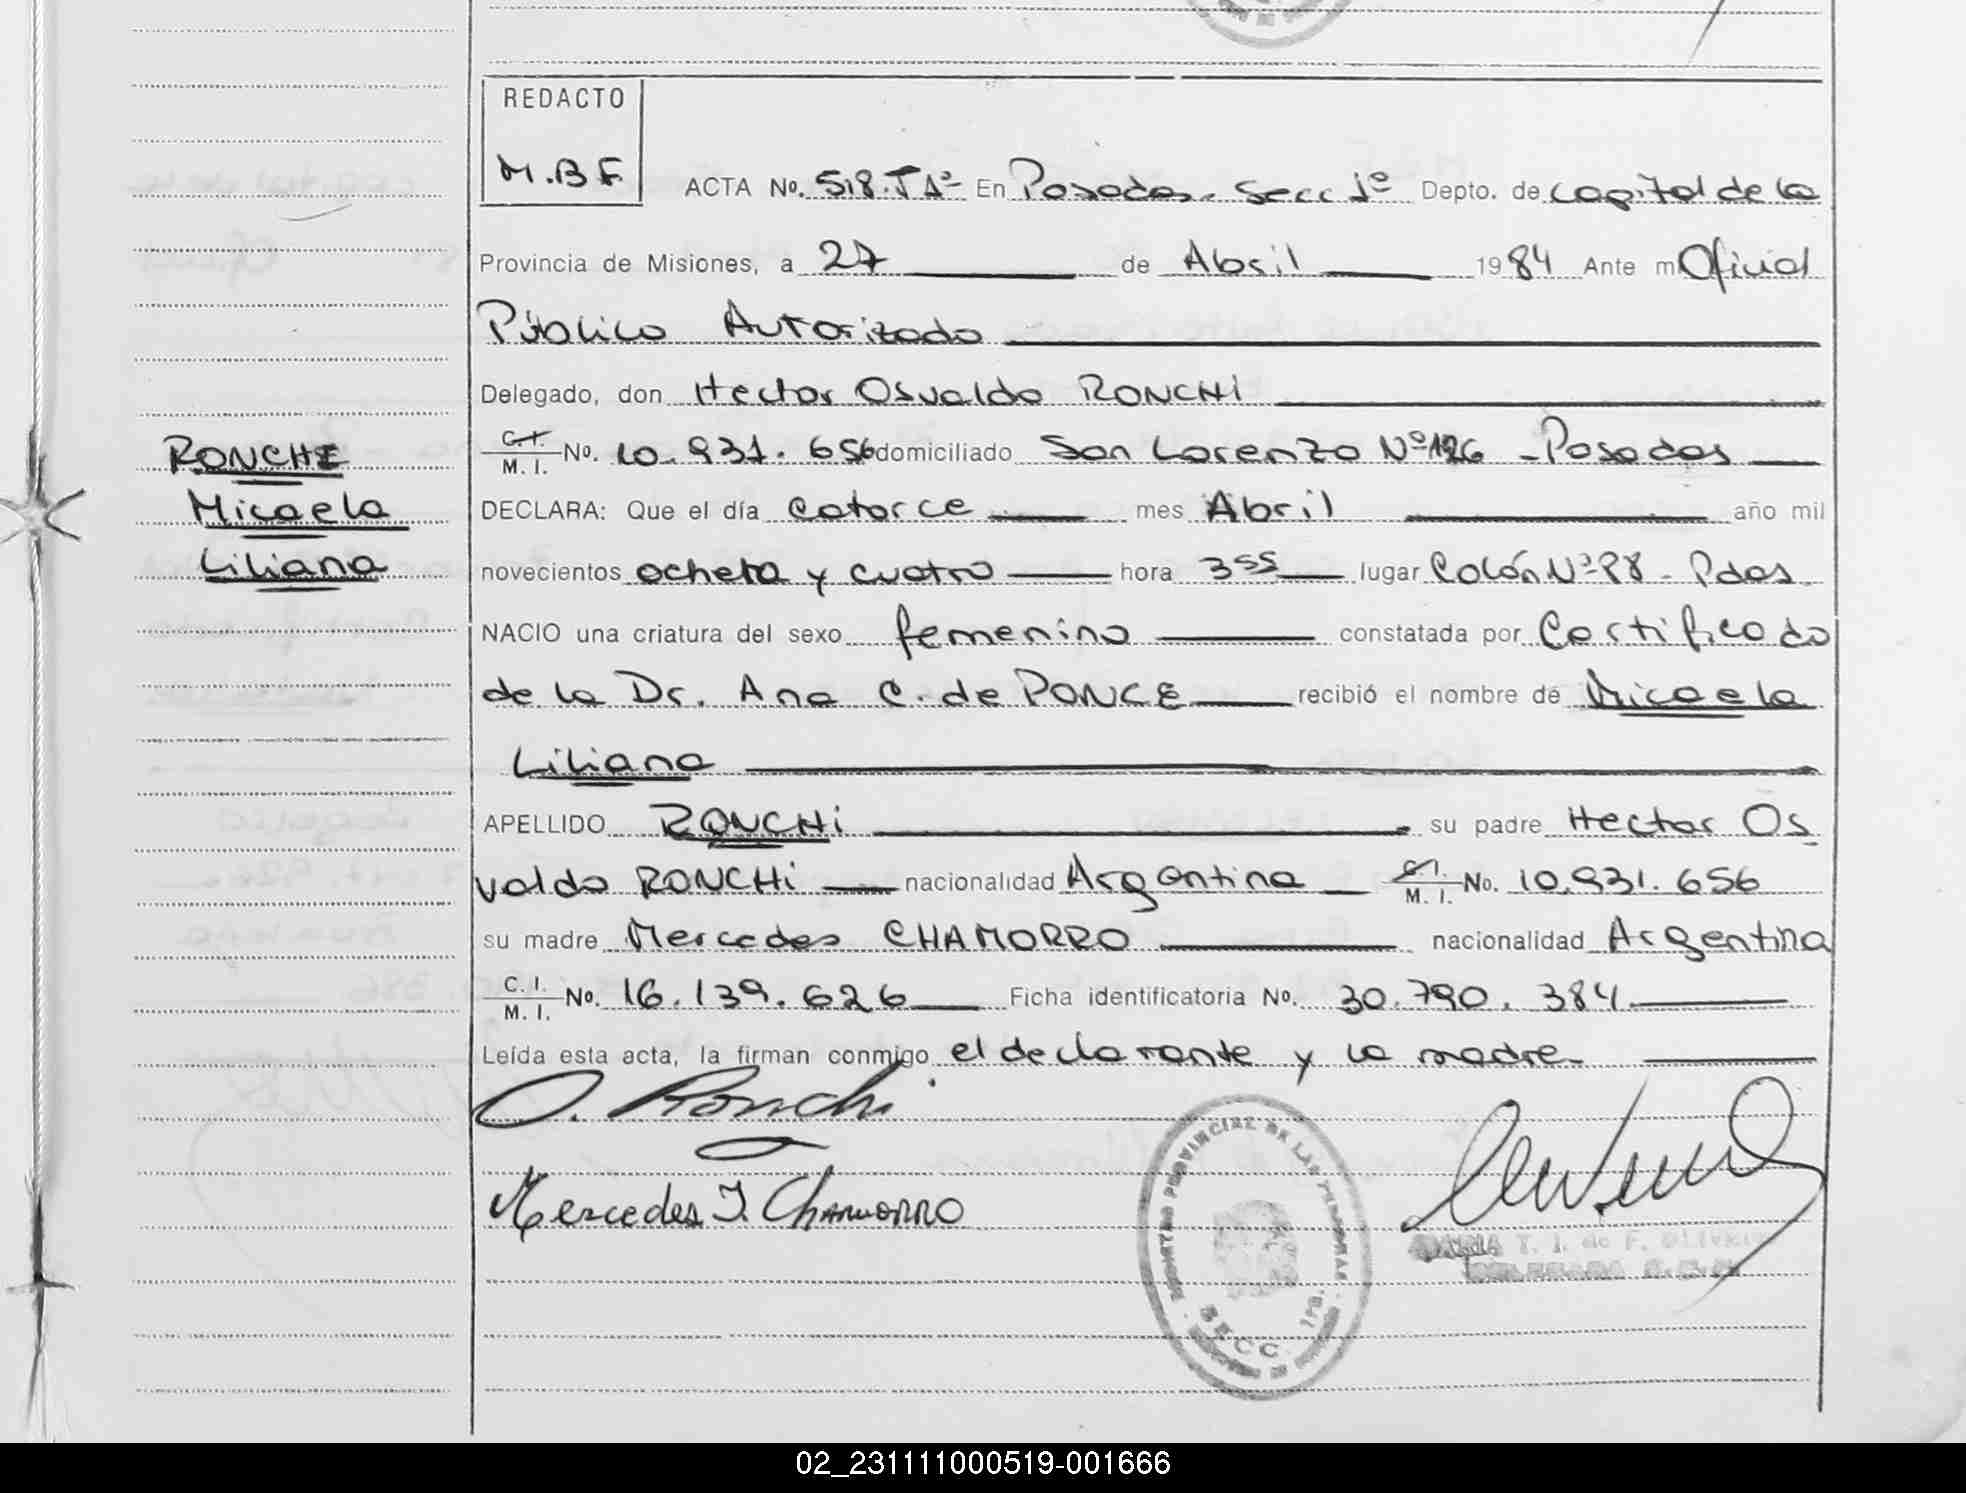 REDACTO
M.B.F.
ACTA No. 518.Tº1º- En Posadas. Secc 1º Depto. de Capital de la
Provincia de Misiones, a 27 de Abril 1984 Ante m Oficial
Público Autorizado
Delegado, don Hector Osvaldo RONCHI
RONCHI
C.I. / M. I. No. 10.931.656 domiciliado San Lorenzo Nº 126 - Posadas
Micaela
DECLARA: Que el día catorce mes Abril año mil
Liliana
novecientos ocheta y cuatro hora 3 55 lugar Colón Nº 98 - Pdas.
NACIO una criatura del sexo femenino constatada por Certificado
de la Dr. Ana C. de PONCE recibió el nombre de Micaela
Liliana
APELLIDO RONCHI su padre Hector Os
valdo RONCHI nacionalidad Argentina C.I. / M. I. No. 10.931.656
su madre Mercedes CHAMORRO nacionalidad Argentina
C. I. / M. I. No. 16.139.626 Ficha identificatoria No. 30.790.384
Leída esta acta, la firman conmigo el declarante y la madre.
O. Ronchi
Mercedes J. CHAMORRO
REGISTRO PROVINCIAL DE LAS PERSONAS
SECC. 1ra.
MARIA T. I. de F. OLIVEIRA
DELEGADA
02_231111000519-001666